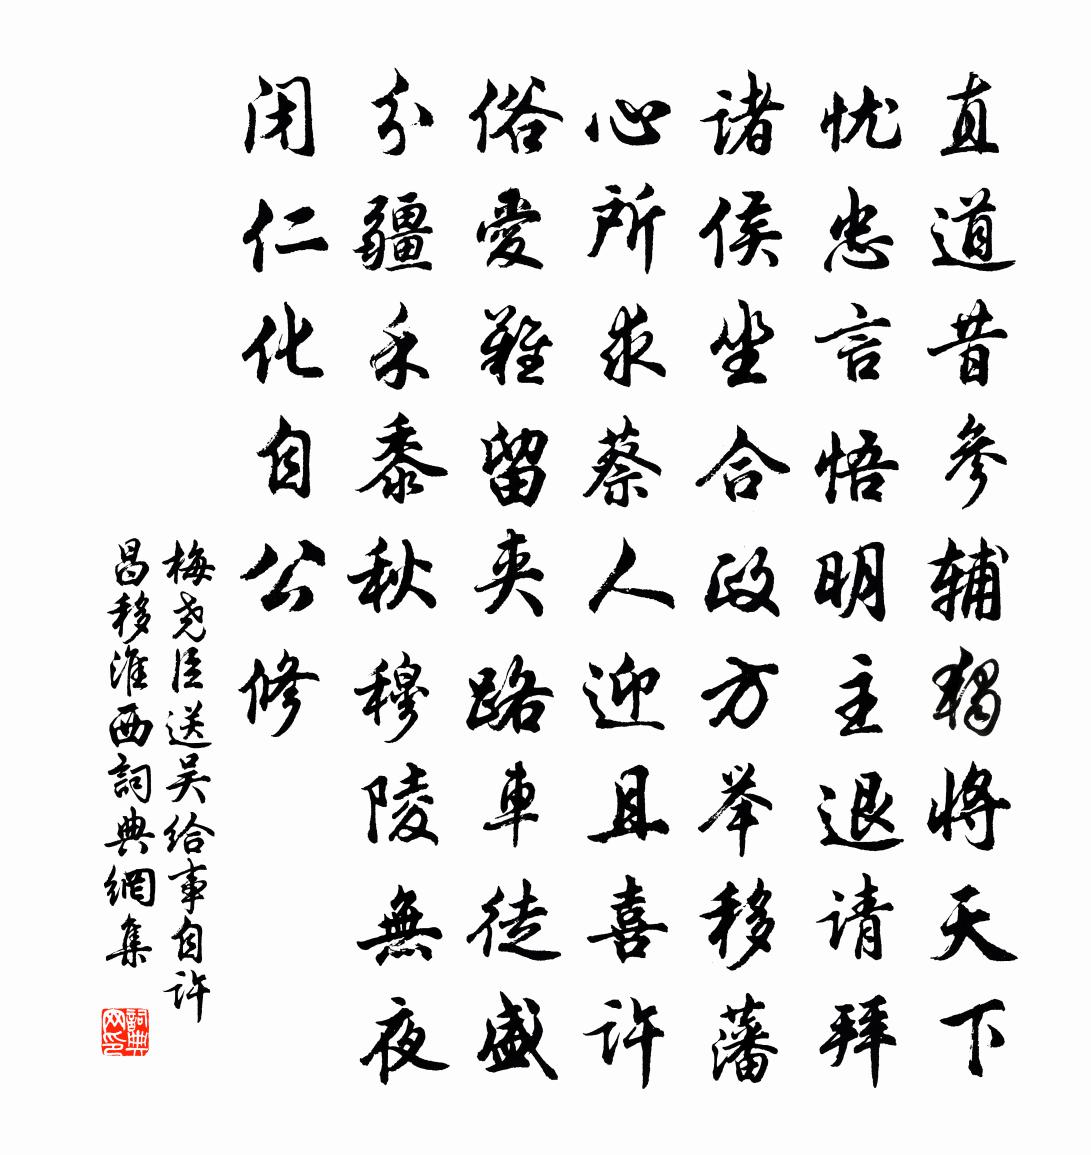 直道昔參辅獨将天下
忧忠言悟明主退请拜
诸侯坐合政方举移藩
心所求蔡人迎且喜许
俗愛難留夹路車徒盛
分疆禾黍秋穆陵無夜
闭仁化自公修
梅尧臣送吴给事自许
昌移淮西詞典網集
詞典
网印